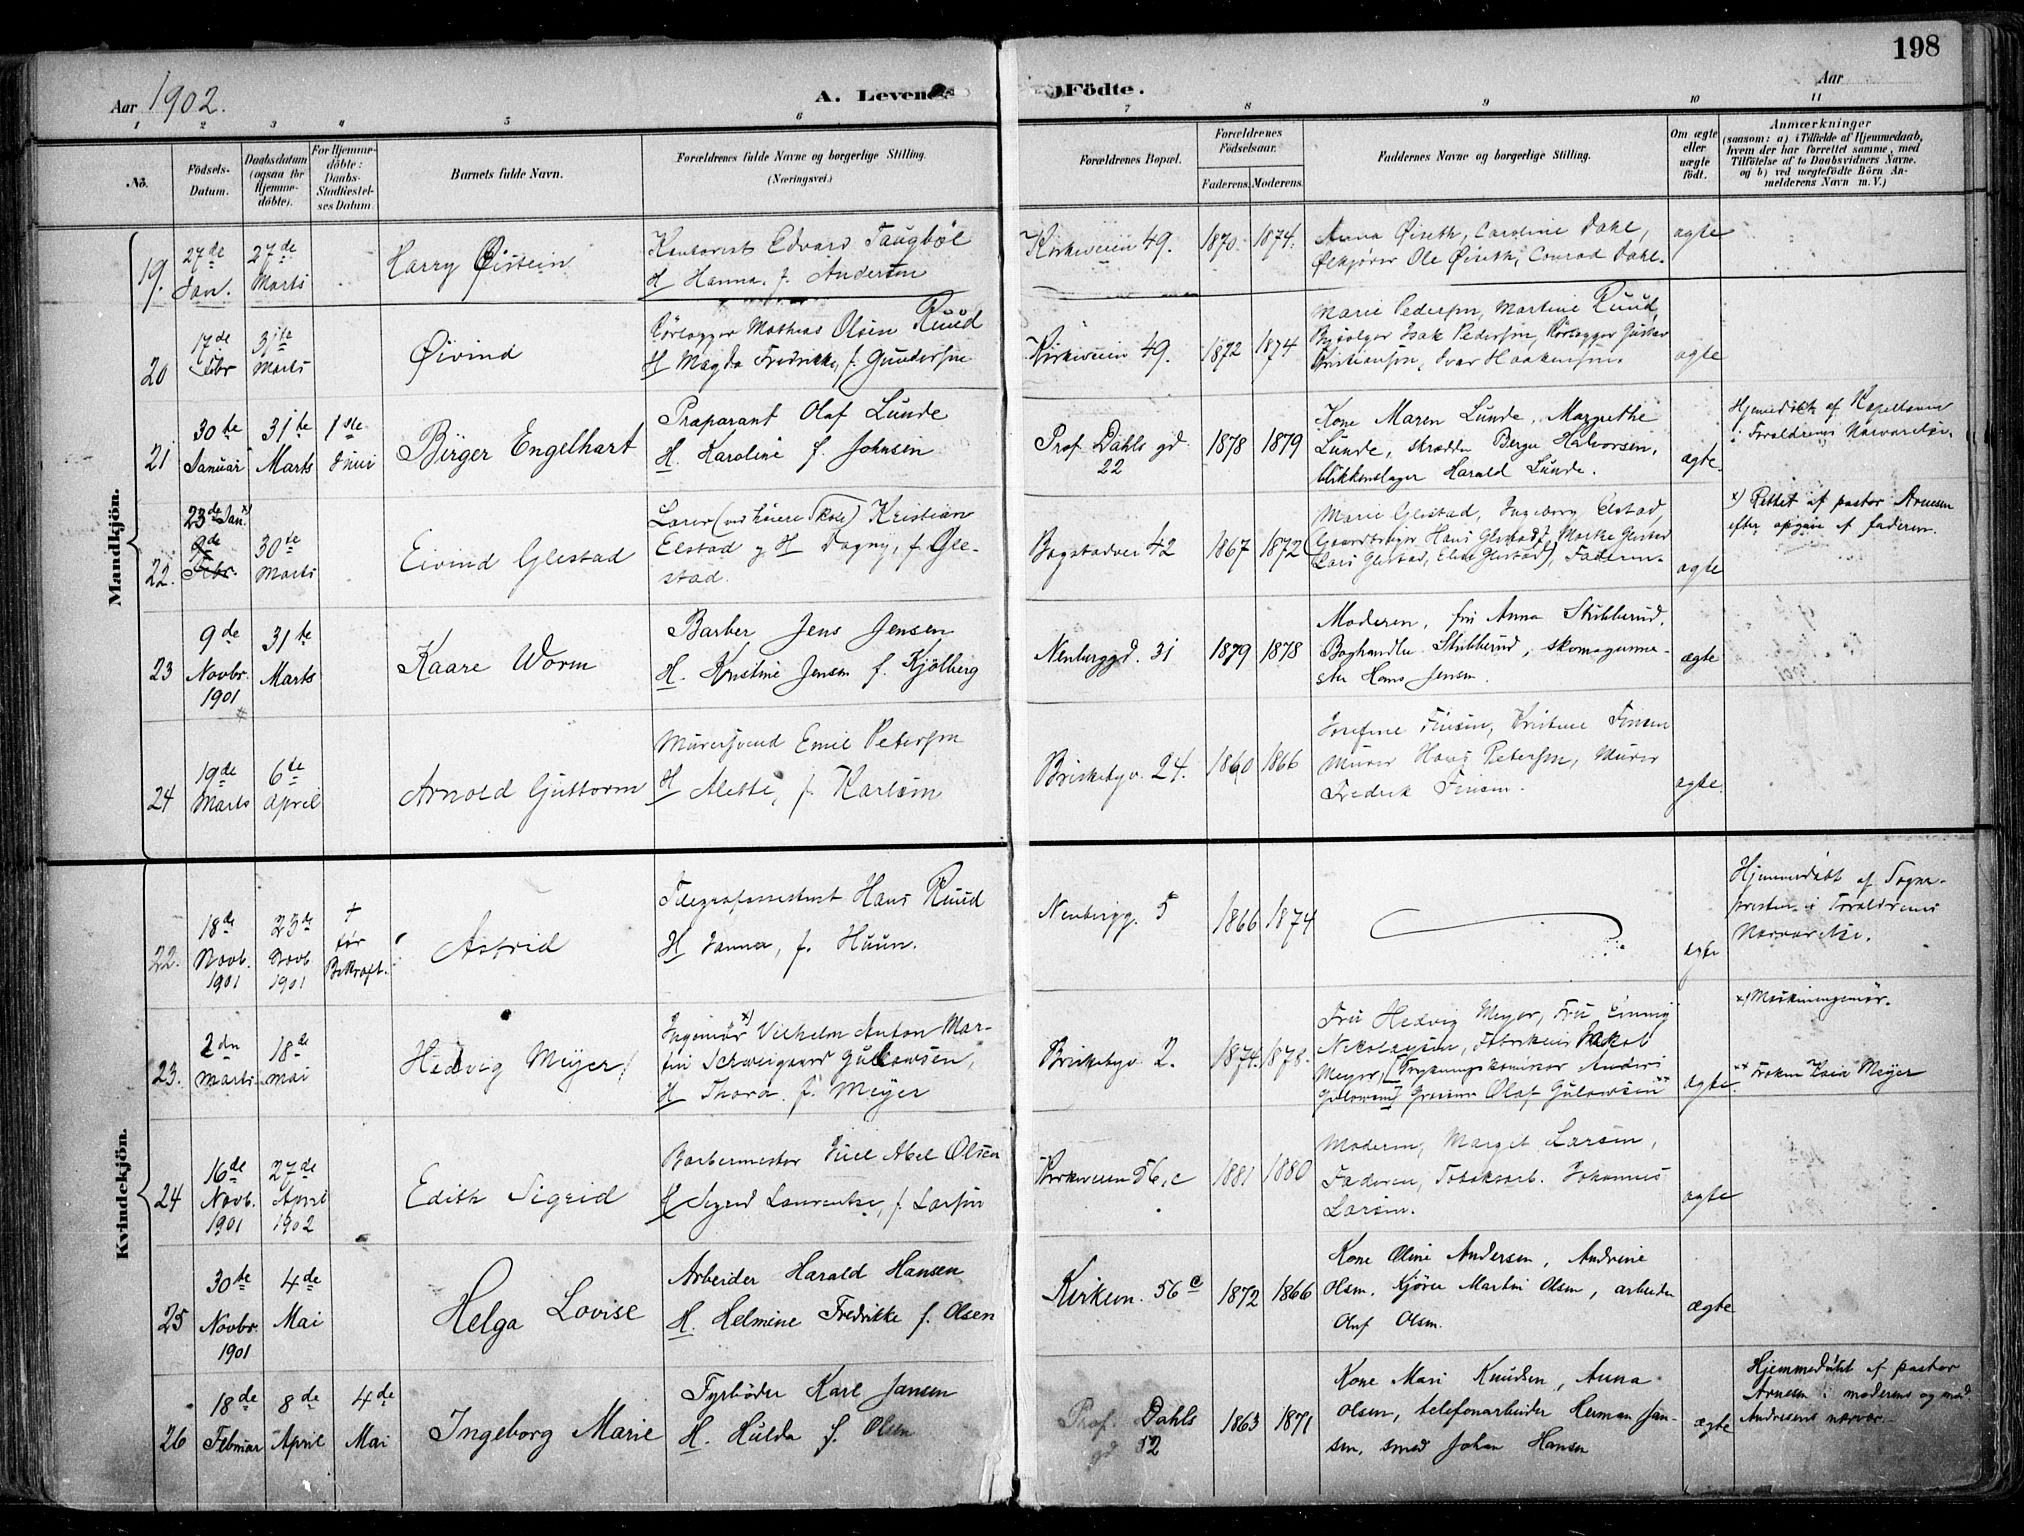 198
Aar 1902.
A. Levende Födte.
Aar
1 2 3 4 5 6 7 8 9 10 11
No.
Födsels-Datum.
Daabsdatum (ogsaa for Hjemme-döbte).
For Hjemme-döbte: Daabs-Stadfæstel-ses Datum.
Barnets fulde Navn.
Forældrenes fulde Navne og borgerlige Stilling. (Næringsvei.)
Forældrenes Bopæl.
Forældrenes Födselsaar.
Faderens. Moderens.
Faddernes Navne og borgerlige Stilling.
Om ægte eller uægte födt.
Anmærkninger
(saasom: a) i Tilfælde af Hjemmedaab, hvem der har forrettet samme, med Tilföielse af to Daabsvidners Navne. og b) ved uægtefödte Börn An-melderens Navn m. V.)
Mandkjön.
19. 27de Jan. 27de Marts
Harry Øistein
Kontorist Edvard Taugböl
H Hanna, f. Andersen
Kirkeveien 49. 1870. 1874.
Anna Øiseth, Caroline Dahl,
Ølkjører Ole Øiseth, Conrad Dahl.
ægte
20 17de Febr 31te Marts
Øivind
Rörlægger Mathias Olsen Ruud
H Magda Fredrikke, f. Gundersen
Kirkeveien 49. 1872 1874
Marie Pedersen, Martine Ruud,
Isak Pedersen, Rörlægger Gustav
Kristiansen, Ivar Haakensen.
ægte
21 30te Januar 31te Marts 1ste Juni
Birger Engelhart
Præparant Olaf Lunde
H. Karoline f. Johnsen
Prof. Dahls gd 22 1878 1879
Kone Maren Lunde, Margrethe
Lunde, skrædder Berge Halvorsen,
blikkenslager Harald Lunde.
ægte.
Hjemmedöbt af Kapellanen
i Foraldrenes Nærværelse.
22. 23de Jan. x) 9de Febr. 30te Marts
Eivind Glestad
Lærer (ved höiere Skole) Kristian
Elstad og H Dagny, f. Gle-
stad.
Bogstadvei 42 1867 1872
Marie Glestad, Ingeborg Elstad,
(Gaardbruger Hans Glestad, Marthe Glestad
Lars Glestad, Elise Glestad), Faderen.
ægte
x) Rettet af pastor Arnesen
efter opgave af faderen.
23 9de Novbr. 1901 31te Marts
Kaare Worm
Barber Jens Jensen
H. Kristine Jensen f. Kjölberg
Neuberggd. 31 1879 1878
Moderen, frk Anna Stubberud,
Boghandler Stubberud, skomagerme-
ster Hans Jensen.
ægte
24 19de Marts 6te April
Arnold Guttorm
Murersvend Emil Petersen
H Mette, f. Karlsen
Briskebyv. 24. 1860 1866
Josefine Finsen, Kristine Finsen
Murer Hans Petersen, Murer
Fredrik Finsen.
ægte
Kvindekjön.
22. 18de Novb. 1901 23de Novb. 1901 † før Bekræft.
Astrid
Telegrafassistent Hans Ruud
H Janna, f. Huun.
Neubergg. 5 1866 1874
ægte
Hjemmedöbt af Sogne-
presten i Forældrenes
Nærværelse.
23. 2den Marts 18de Mai
Hedvig Meyer
Ingeniør x) Vilhelm Anton Mar-
tin Schweigaard Gulowsen,
H Thora f. Meyer
Briskebyv. 2. 1874. 1878.
Fru Hedvig Meyer, Fru Emmy
Nikolaysen, Fabrikeier Jakob
Meyer, [Brygningskontrolør Anders
Gulowsen] Grosserer Olaf Gulowsen xx
ægte.
x) Maskiningeniør.
xx Frøken Kaia Meyer
24 16de Novb. 1901 27de April 1902
Edith Sigrid
Barbermester Juel Abel Olsen
H Sigrid Laurentze, f. Larsen
Kirkeveien 56,c 1881 1880
Moderen, Margit Larsen,
Faderen, Tobaksarb. Johannes
Larsen.
ægte
25 30te Novbr. 1901 4de Mai
Helga Lovise
Arbeider Harald Hansen
H. Helmine Fredrikke f. Olsen
Kirkevn. 56c 1872 1866
Kone Oline Andersen, Andrine
Olsen, Kjörer Martin Olsen, arbeider
Oluf Olsen.
ægte
26 18de Februar 8de April 4de Mai
Ingeborg Marie
Fyrböder Karl Jansen
H. Hulda f. Olsen
Prof. Dahls gd 52 1863 1871
Kone Mari Knudsen, Anna
Olsen, telefonarbeider Herman Jan-
sen, smed Johan Hansen
ægte
Hjemmedöbt af pastor
Arnesen i moderens og mad
Andresens nærvær.